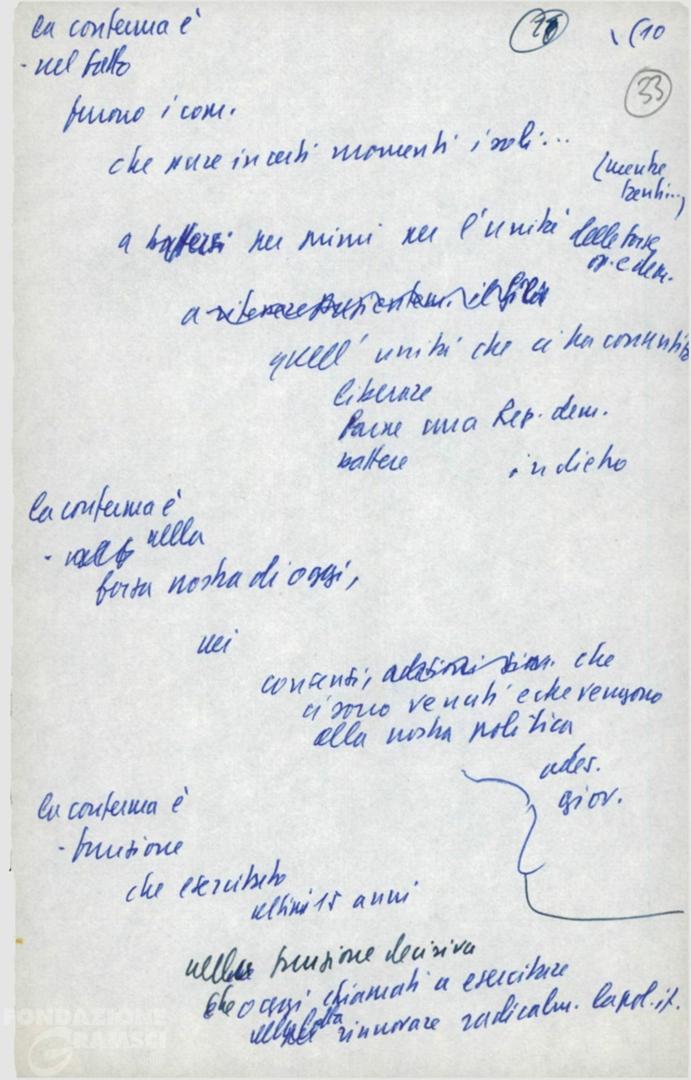 la conferma è
- nel fatto
furono i com.
che pure in certi momenti i soli...
(mentre
tenti...)
a battersi per primi per l'unità delle forze
op. e dem.
a
quell'unità che ci ha consentito
liberare
Fare una Rep. dem.
battere indietro
la conferma è
- nella
forza nostra di oggi,
nei
consensi, adesioni sim. che
ci sono venuti e che vengono
alla nostra politica
ades.
giov.
la conferma è
- funzione
che esercitato
ultimi 15 anni
nella funzione decisiva
che oggi chiamati a esercitare
nella lotta
per rinnovare radicalm. la pol. it.
(10
33
FONDAZIONE
GRAMSCI